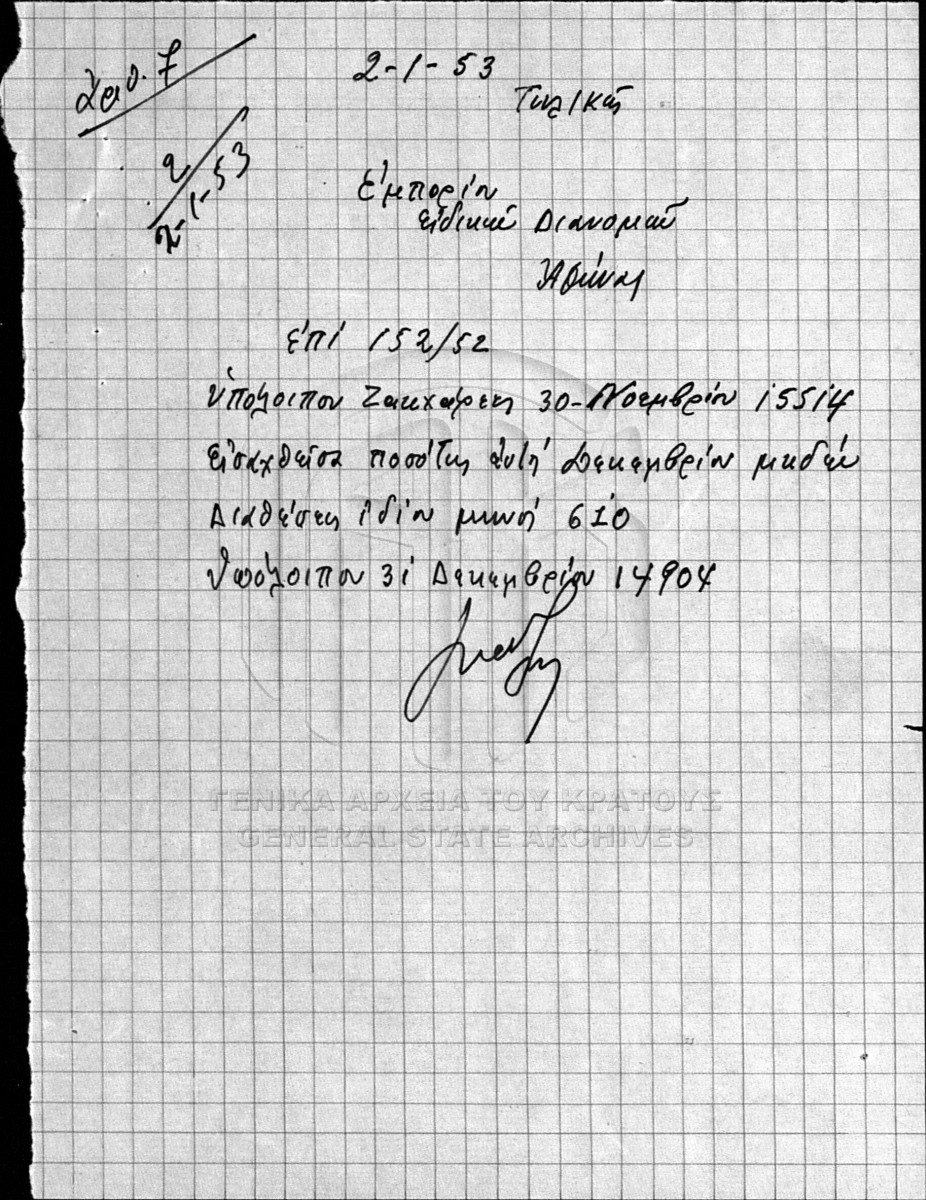 Αριθ. 7
2
2-1-53
2-1-53
Τηλ/κώς
Εμπορίου
Ειδικάς Διανομάς
Αθήνας
Επί 152/52
Υπόλοιπον Ζακχάρεως 30-Νοεμβρίου 15514
Εισαχθείσα ποσότης Δεκεμβρίου μηδέν
Διαθέσεις ιδίου μηνός 610
Υπόλοιπον 31 Δεκεμβρίου 14904
ΓΕΝΙΚΑ ΑΡΧΕΙΑ ΤΟΥ ΚΡΑΤΟΥΣ
GENERAL STATE ARCHIVES